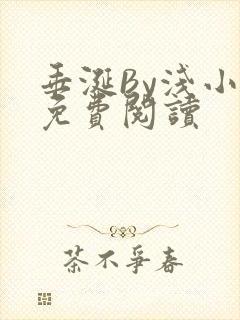 垂涎By浅小
免費閱讀
茶不爭春